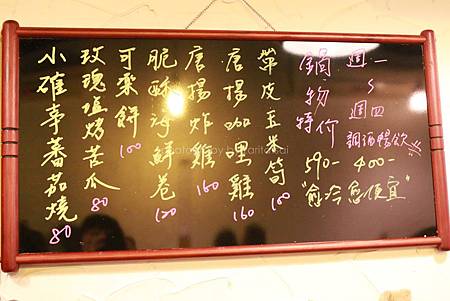 週一~週四
調酒暢飲!!!
400-
鍋物特价
590-
"愈冷愈便宜"
帶皮玉米筍 100
唐揚咖哩雞 160
唐揚炸雞 160
脆酥海鮮卷 120
可樂餅 100
玫瑰塩烤苦瓜 80
小確幸蕃茄燒 80